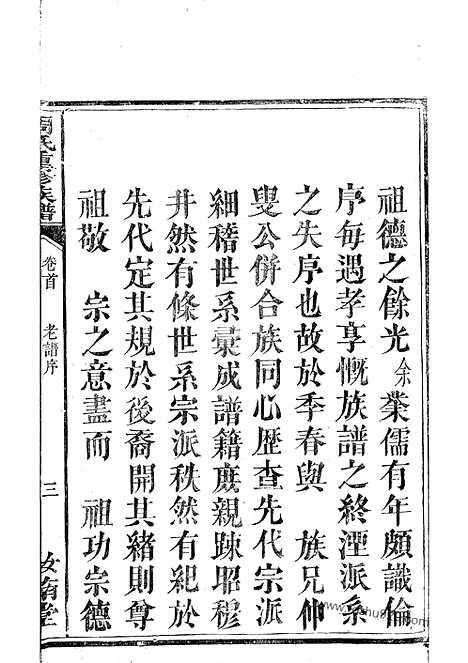 祖德之餘光余業儒有年頗識倫
序每遇孝享慨族譜之終湮派系
之失序也故於季春與　族兄仲
叟公併合族同心歷查先代宗派
細稽世系彙成譜籍庶親踈昭穆
井然有條世系宗派秩然有紀於
先代定其規於後裔開其緒則尊
祖敬　宗之意盡而　祖功宗德
周氏重修族譜
卷首　老譜序　三　汝南堂